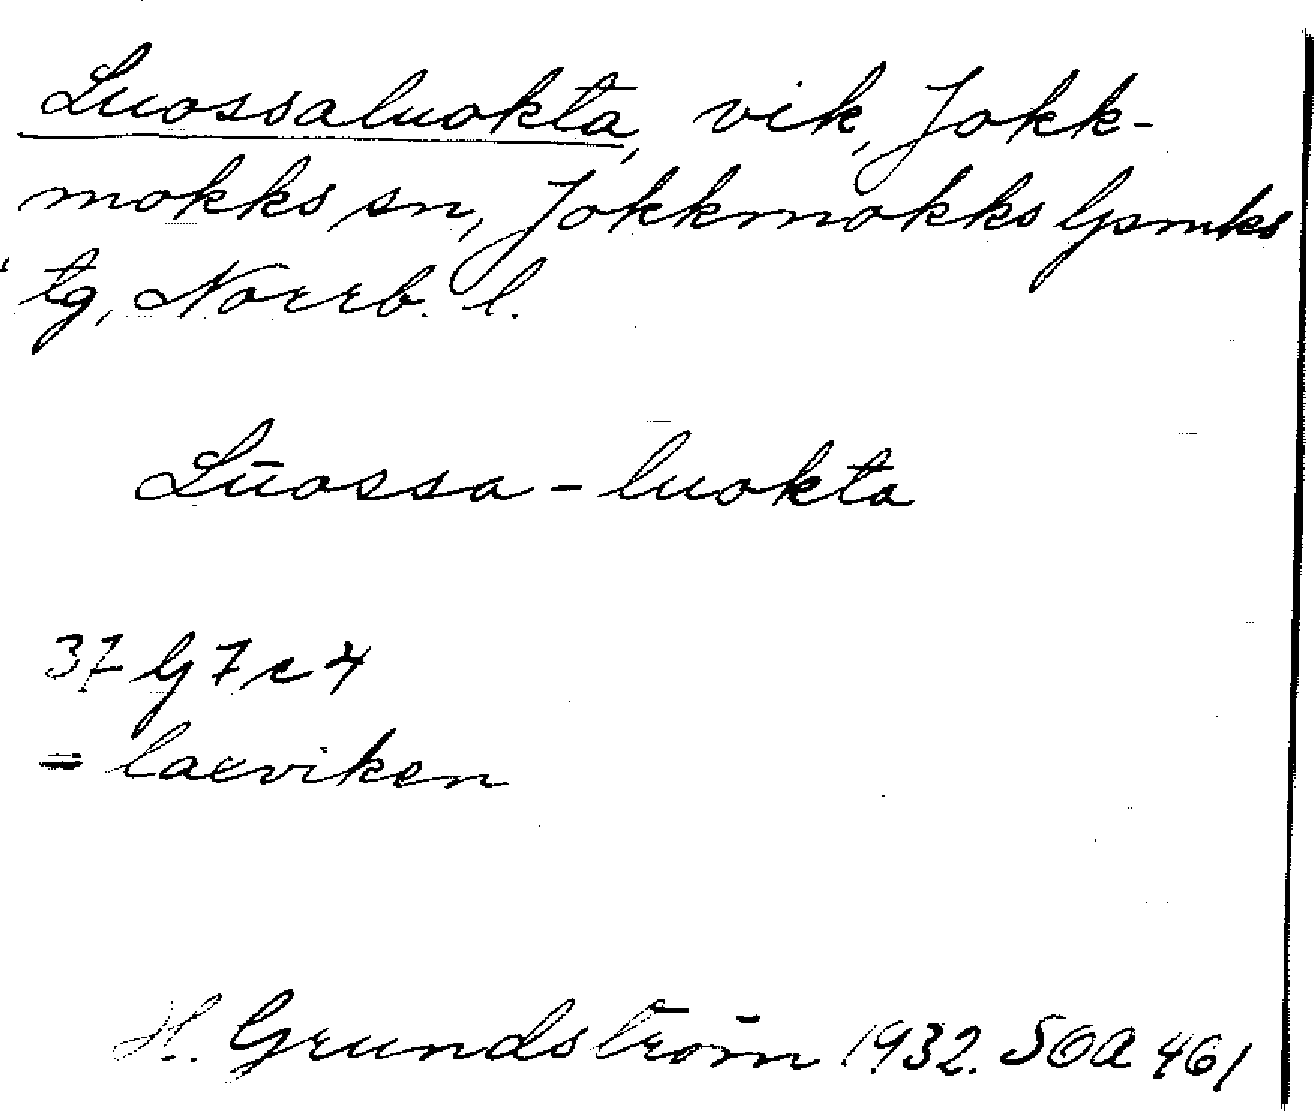 Luossaluokta, vik, Jokk-
mokks sn, Jokkmokks lpmks
tg, Norrb. l.
Lūossa-luokta
37 G 7 c 4
= laxviken
H. Grundström 1932. SOA 461